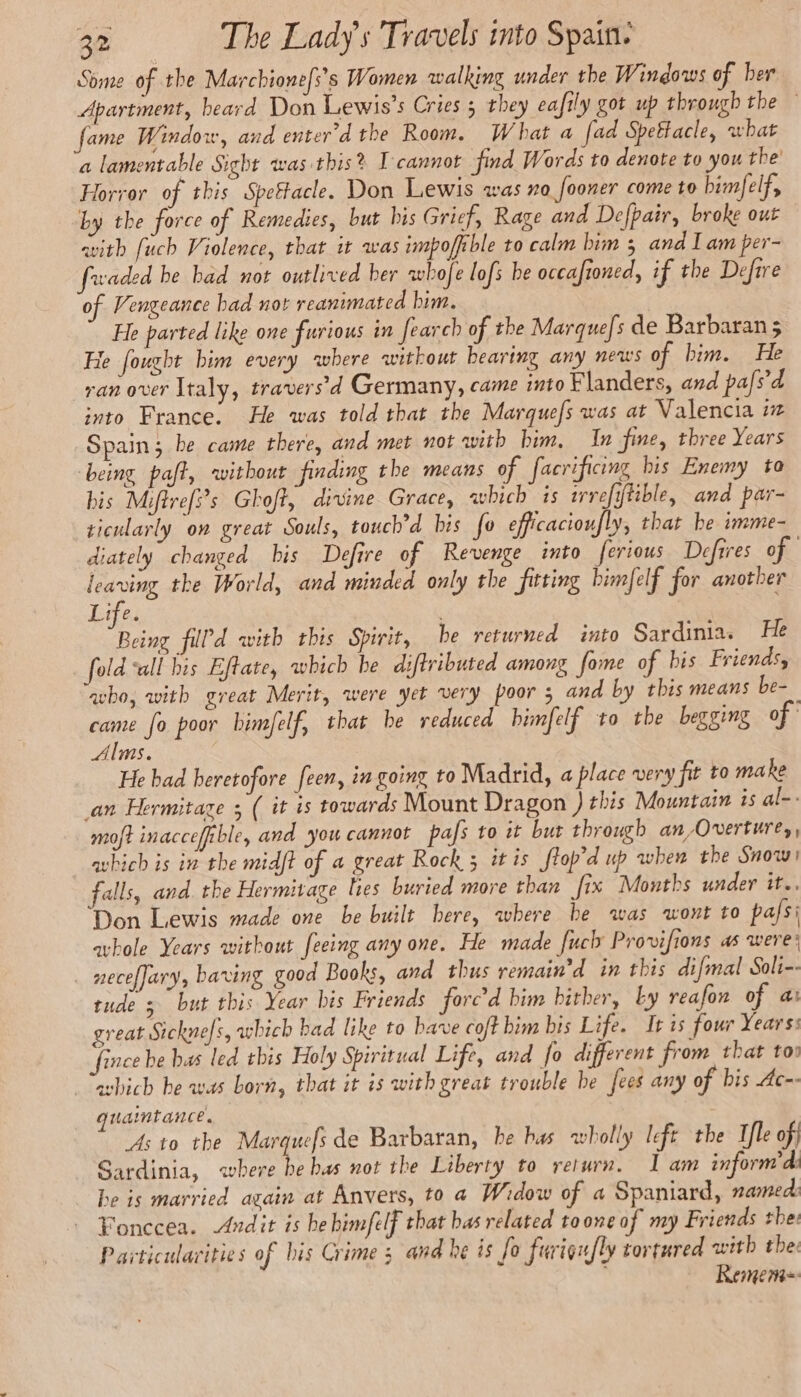 32 The Lady's Travels into Spain.
Some of the Marchioneſs's Women walking under the Windows of her
Apartment, heard Don Lewis's Cries; they eaſily got up through the
ſame Window, and enter'd the Room. What a ſad Spectacle, what
a lamentable Sight was this? I cannot find Words to denote to you the
Horror of this Spectacle. Don Lewis was no ſooner come to himſelf,
by the force of Remedies, but his Grief, Rage and Deſpair, broke out
with ſuch Violence, that it was impoſſible to calm him; and I am per-
ſwaded he had not outlived her whoſe loſs he occaſioned, if the Deſire
of Vengeance had not reanimated him.
He parted like one furious in ſearch of the Marqueſs de Barbaran;
He ſought him every where without hearing any news of him. He
ran over Italy, travers'd Germany, came into Flanders, and paſs'd
into France. He was told that the Marqueſs was at Valencia in
Spain; he came there, and met not with him. In fine, three Years
being paſt, without finding the means of ſacrificing his Enemy to
his Miſtreſs's Ghoſt, divine Grace, which is irreſiſtible, and par-
ticularly on great Souls, touch'd his ſo efficaciouſly, that he imme-
diately changed his Deſire of Revenge into ſerious Deſires of
leaving the World, and minded only the fitting himſelf for another
Life.
Being fill'd with this Spirit, he returned into Sardinia. He
ſold all his Eſtate, which he diſtributed among ſome of his Friends,
who, with great Merit, were yet very poor; and by this means be-
came ſo poor himſelf, that he reduced himſelf to the begging of
Alms.
He had heretofore ſeen, in going to Madrid, a place very fit to make
an Hermitage; ( it is towards Mount Dragon ) this Mountain is al-
moſt inacceſſible, and you cannot paſs to it but through an Overture,
which is in the midſt of a great Rock; it is ſtop'd up when the Snow
falls, and the Hermitage lies buried more than ſix Months under it.
Don Lewis made one be built here, where he was wont to paſs
whole Years without ſeeing any one. He made ſuch Proviſions as were
neceſſary, having good Books, and thus remain'd in this diſmal Soli-
tude; but this Year his Friends forc'd him hither, by reaſon of a
great Sickneſs, which had like to have coſt him his Life. It is four Years
ſince he has led this Holy Spiritual Life, and ſo different from that to
which he was born, that it is with great trouble he ſees any of his Ac-
quaintance.
As to the Marqueſs de Barbaran, he has wholly left the Iſle of
Sardinia, where he has not the Liberty to return. I am inform'd
he is married again at Anvers, to a Widow of a Spaniard, named
Fonccea. And it is he himſelf that has related to one of my Friends the
Particularities of his Crime; and he is ſo furiouſly tortured with the
Remem-